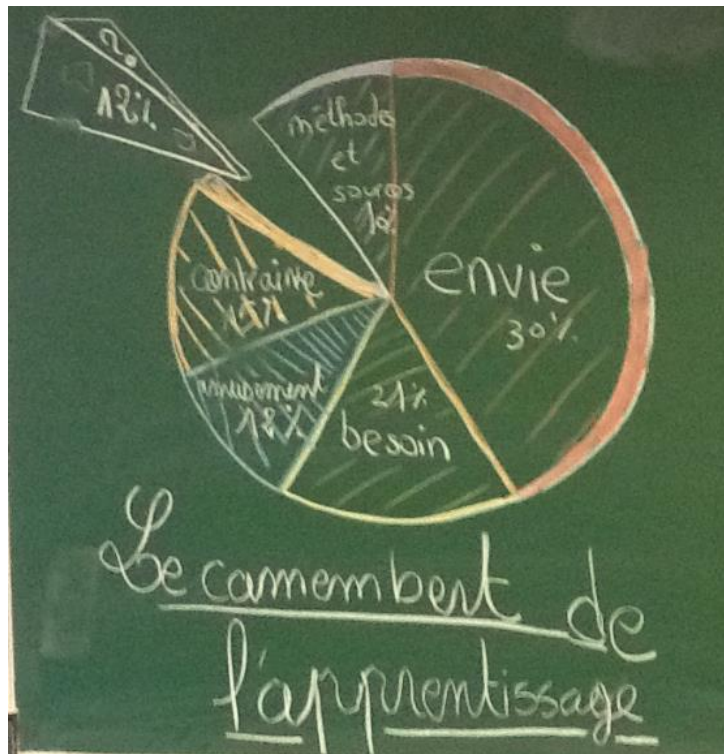 ?
12%
méthodes
et
sources
10%
envie
30%
contrainte
15%
amusement
12%
21%
besoin
Le camembert de
l'apprentissage